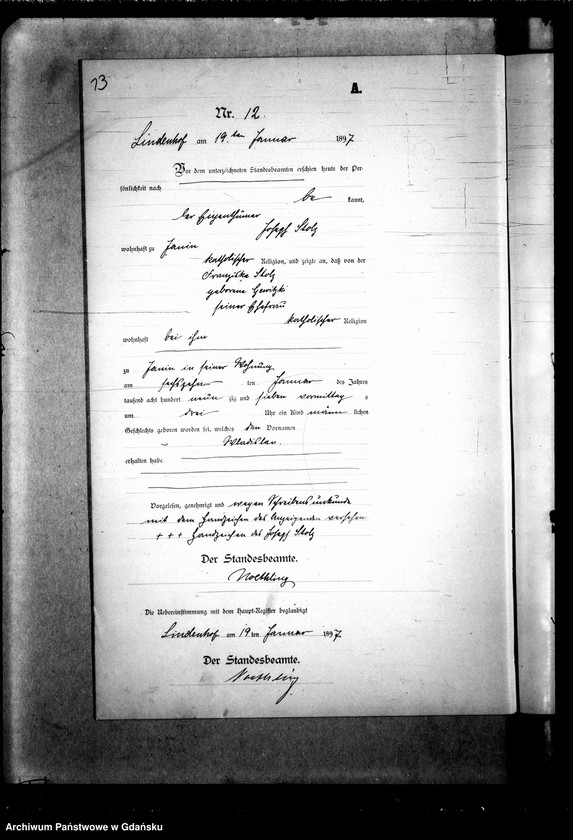 13
A.
Nr. 12.
Lindenhof am 19.ten Januar 1897
Vor dem unterzeichneten Standesbeamten erschien heute der Per-
sönlichkeit nach
be kannt,
der Eigenthümer
Josef Stolz
wohnhaft zu Janin
katholischer Religion, und zeigte an, daß von der
Franziska Stolz
geborene
seiner Ehefrau
katholischer Religion
wohnhaft bei ihm
zu Janin in seiner Wohnung
am sechszehn ten Januar des Jahres
tausend acht hundert neun zig und sieben vormittag s
um drei Uhr ein Kind männ lichen
Geschlechts geboren worden sei, welches den Vornamen
Wladislaw.
erhalten habe.
Vorgelesen, genehmigt und wegen Schreibensunkunde
mit dem Handzeichen des Anzeigenden versehen
+ + + Handzeichen des Josef Stolz
Der Standesbeamte.
Noethling
Die Uebereinstimmung mit dem Haupt-Register beglaubigt
Lindenhof am 19 ten Januar 1897
Der Standesbeamte.
Noethling
Archiwum Państwowe w Gdańsku